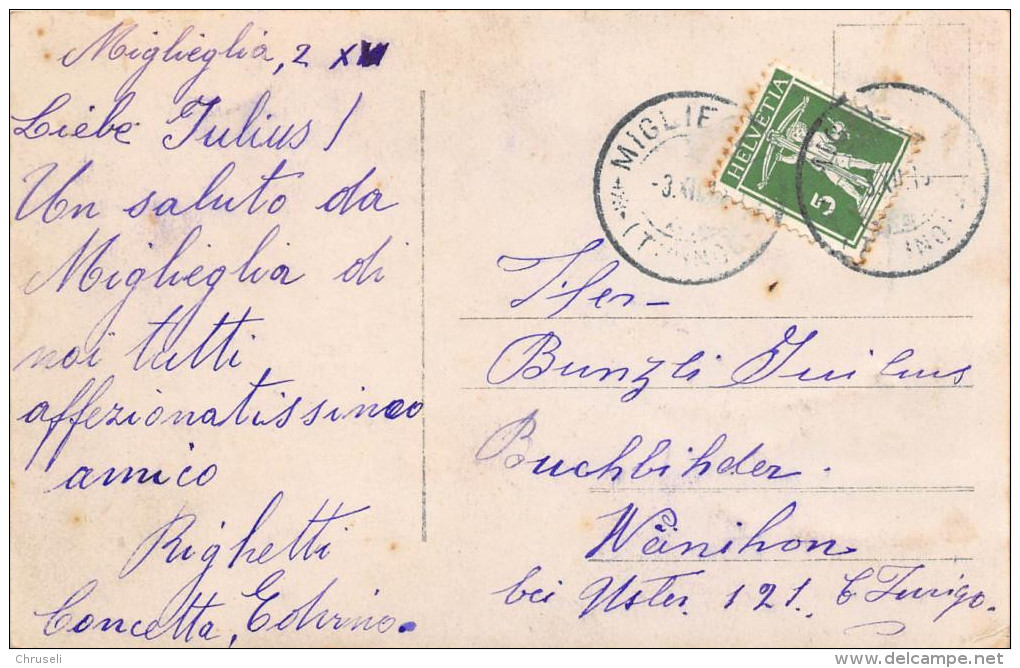 Miglieglia, 2 XII
Liebe Julius!
Un saluto da
Miglieglia di
noi tutti
affezionatissimo
amico
Righetti
Concetta,
MIGLIE
(TICINO)
HELVETIA
5
Her-
Bunzli Juilius
Buchbihder.
Wänihon
bei Uster 121.
Chruseli
delcampe.net